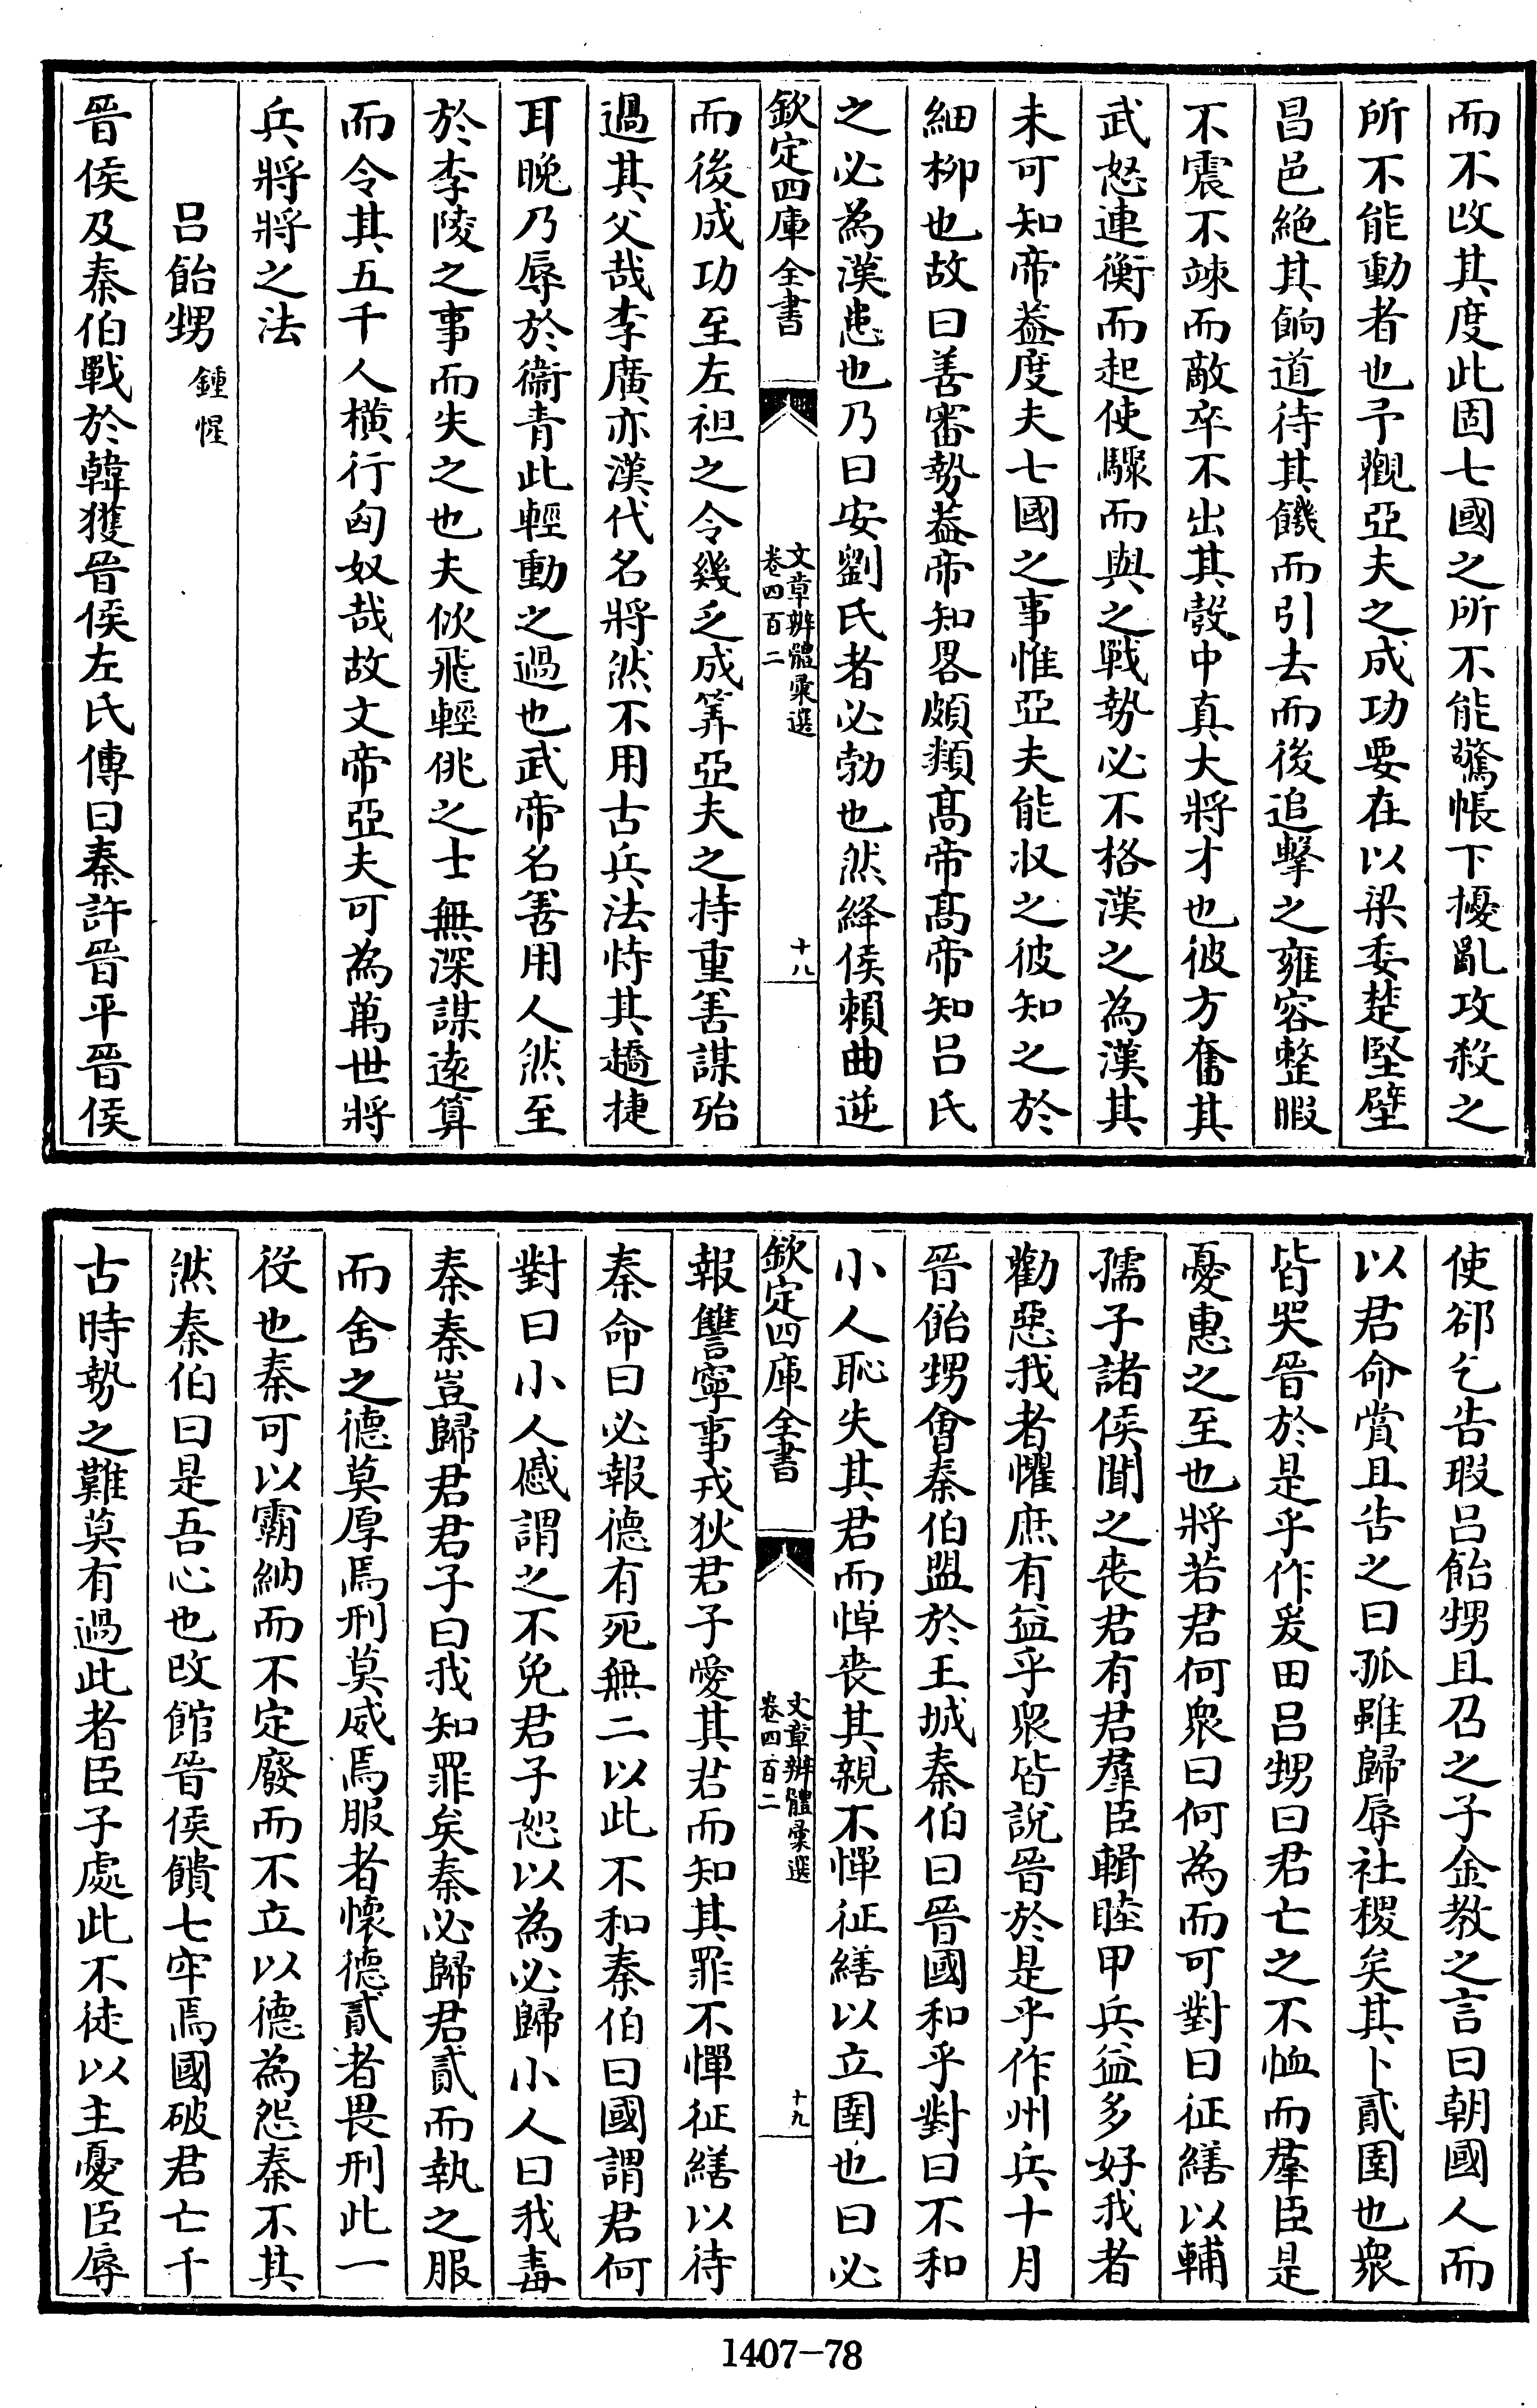 而不改其度此固七國之所不能驚帳下擾亂攻殺之
所不能動者也予觀亞夫之成功要在以梁委楚堅壁
昌邑絶其餉道待其饑而引去而後追擊之雍容整暇
不震不竦而敵卒不出其彀中真大將才也彼方奮其
武怒連衡而起使驟而與之戰勢必不格漢之為漢其
未可知帝葢度夫七國之事惟亞夫能収之彼知之於
細柳也故曰善審勢葢帝知畧頗類髙帝髙帝知呂氏
之必為漢患也乃曰安劉氏者必勃也然絳侯賴曲逆
欽定四庫全書
文章辨體彙選
卷四百二
十八
而後成功至左袒之令幾乏成筭亞夫之持重善謀殆
過其父哉李廣亦漢代名將然不用古兵法恃其趫捷
耳晚乃辱於衞青此輕動之過也武帝名善用人然至
於李陵之事而失之也夫佽飛輕佻之士無深謀遠算
而令其五千人横行匈奴哉故文帝亞夫可為萬世將
兵將將之法
呂飴甥 鍾惺
晉侯及秦伯戰於韓獲晉侯左氏傳曰秦許晉平晉侯
使郤乞告瑕呂飴甥且召之子金教之言曰朝國人而
以君命賞且告之曰孤雖歸辱社稷矣其卜貳圉也衆
皆哭晉於是乎作爰田呂甥曰君亡之不恤而羣臣是
憂惠之至也將若君何衆曰何為而可對曰征繕以輔
孺子諸侯聞之喪君有君羣臣輯睦甲兵益多好我者
勸惡我者懼庶有益乎衆皆説晉於是乎作州兵十月
晉飴甥會秦伯盟於王城秦伯曰晉國和乎對曰不和
小人恥失其君而悼喪其親不憚征繕以立圉也曰必
欽定四庫全書
文章辨體彙選
卷四百二
十九
報讐寧事戎狄君子愛其君而知其罪不憚征繕以待
秦命曰必報德有死無二以此不和秦伯曰國謂君何
對曰小人慼謂之不免君子恕以為必歸小人曰我毒
秦秦豈歸君君子曰我知罪矣秦必歸君貳而執之服
而舍之德莫厚焉刑莫威焉服者懷德貳者畏刑此一
役也秦可以霸納而不定廢而不立以德為怨秦不其
然秦伯曰是吾心也改館晉侯饋七牢焉國破君亡千
古時勢之難莫有過此者臣子處此不徒以主憂臣辱
1407-78